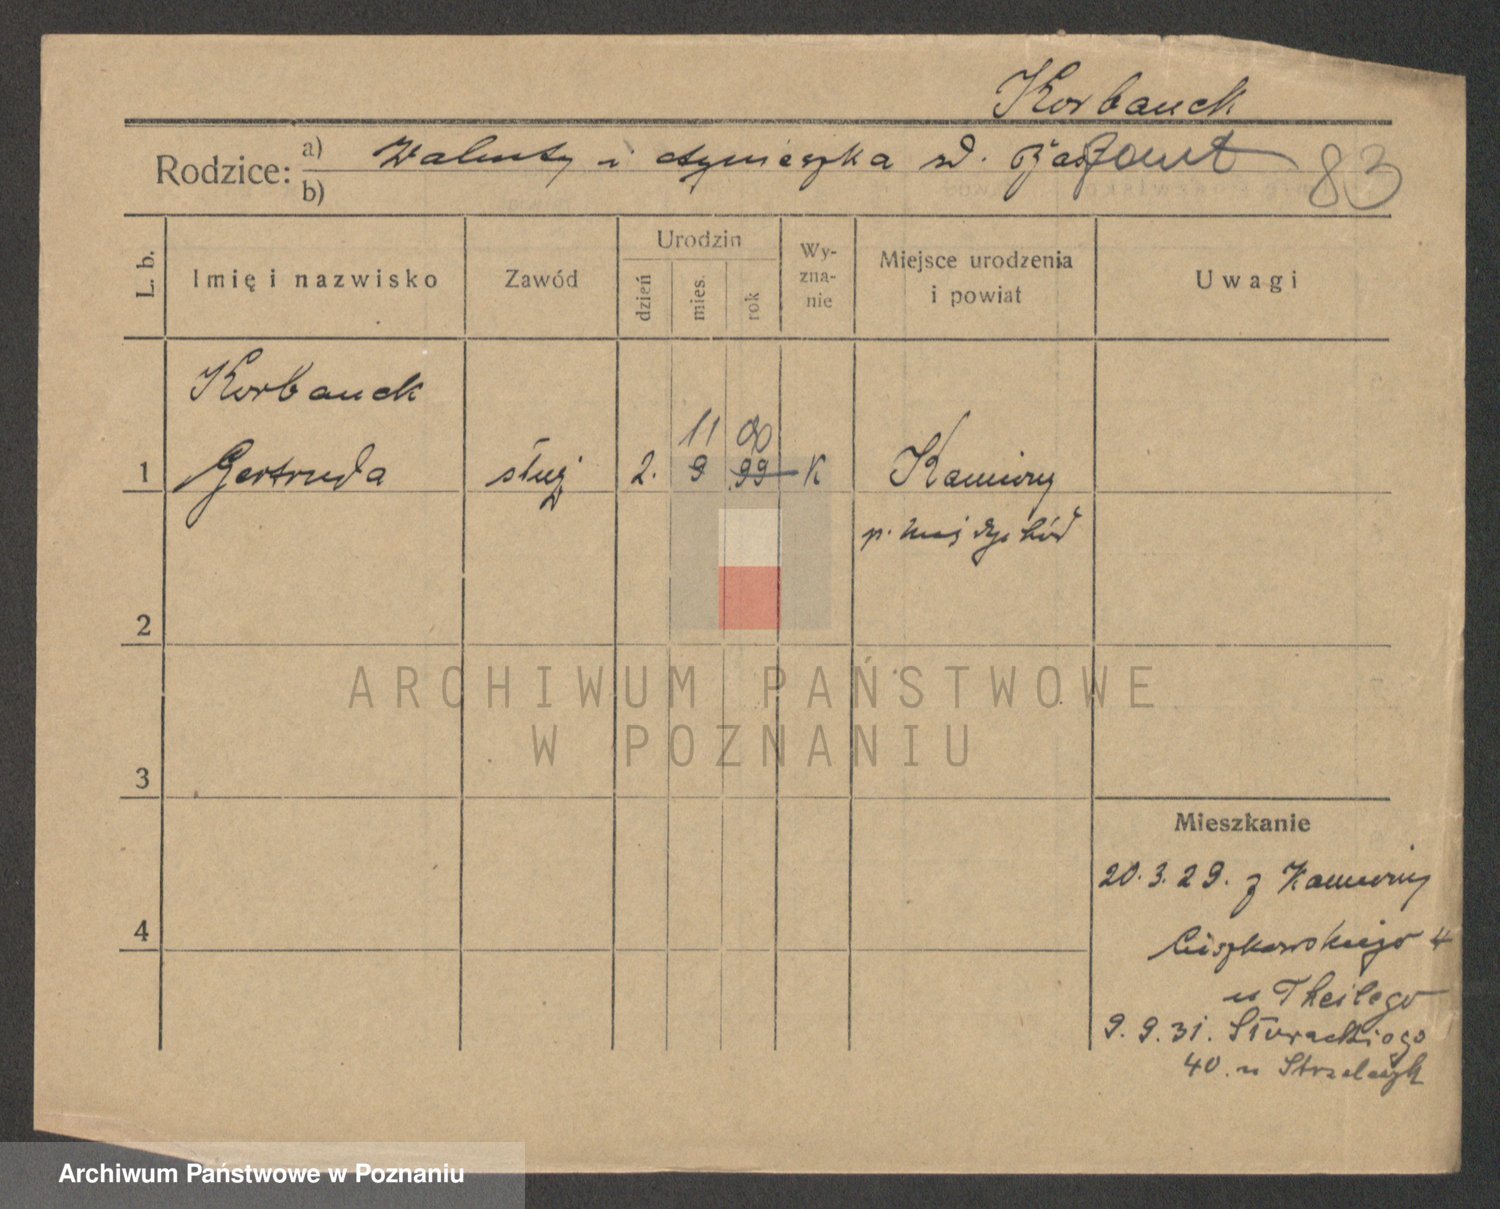 Korbanek
Rodzice: a) Walenty i Agnieszka zd.
b)
83
L. b.
Imię i nazwisko
Zawód
Urodzin
dzień
mies.
rok
Wy-
zna-
nie
Miejsce urodzenia
i powiat
Uwagi
Korbanek
11 00
1 Gertruda służ 2. 9 99 K Kamiony
p. Międzychód
2
3
4
ARCHIWUM PAŃSTWOWE
W POZNANIU
Mieszkanie
20.3.29. z Kamiony
Cieszkowskiego 4
u Theilego
9.9.31. Słowackiego
40. u
Archiwum Państwowe w Poznaniu